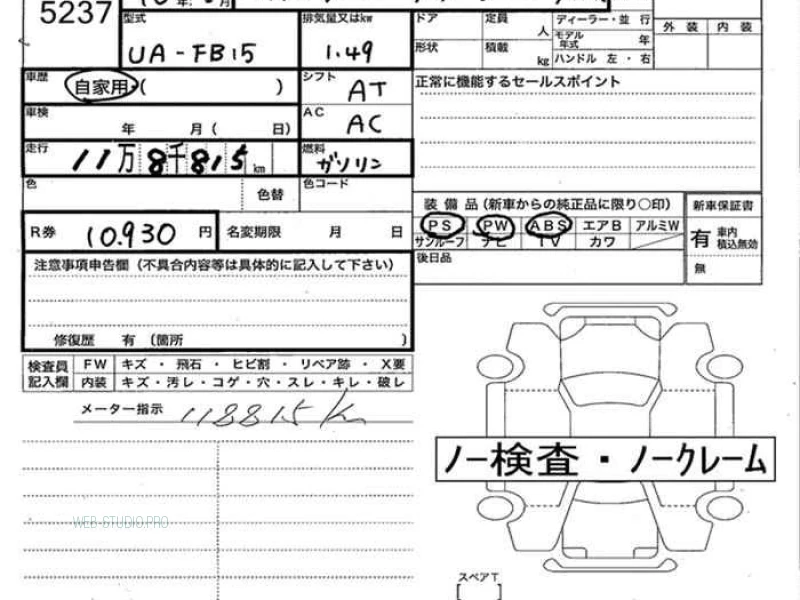 5237
型式
UA-FB15
排気量又はkw
1.49
ドア
定員
人
ディーラー・並 行
モデル年式
年
外 装
内 装
形状
積載
kg
ハンドル 左・右
車歴
自家用・( )
シフト
AT
正常に機能するセールスポイント
車検
年 月( 日)
AC
AC
走行
11万8千815km
燃料
ガソリン
色
色替
色コード
装 備 品(新車からの純正品に限り〇印)
新車保証書
R券 10.930 円
名変期限 月 日
PS PW ABS エアB アルミW
サンルーフ ナビ TV カワ
有 車内積込無効
無
後日品
注意事項申告欄(不具合内容等は具体的に記入して下さい)
修復歴 有 (箇所 )
検査員記入欄
FW キズ・飛石・ヒビ割・リペア跡・X要
内装 キズ・汚レ・コゲ・穴・スレ・キレ・破レ
メーター指示 118815km
ノー検査・ノークレーム
WEB-STUDIO.PRO
スペアT
[ ]